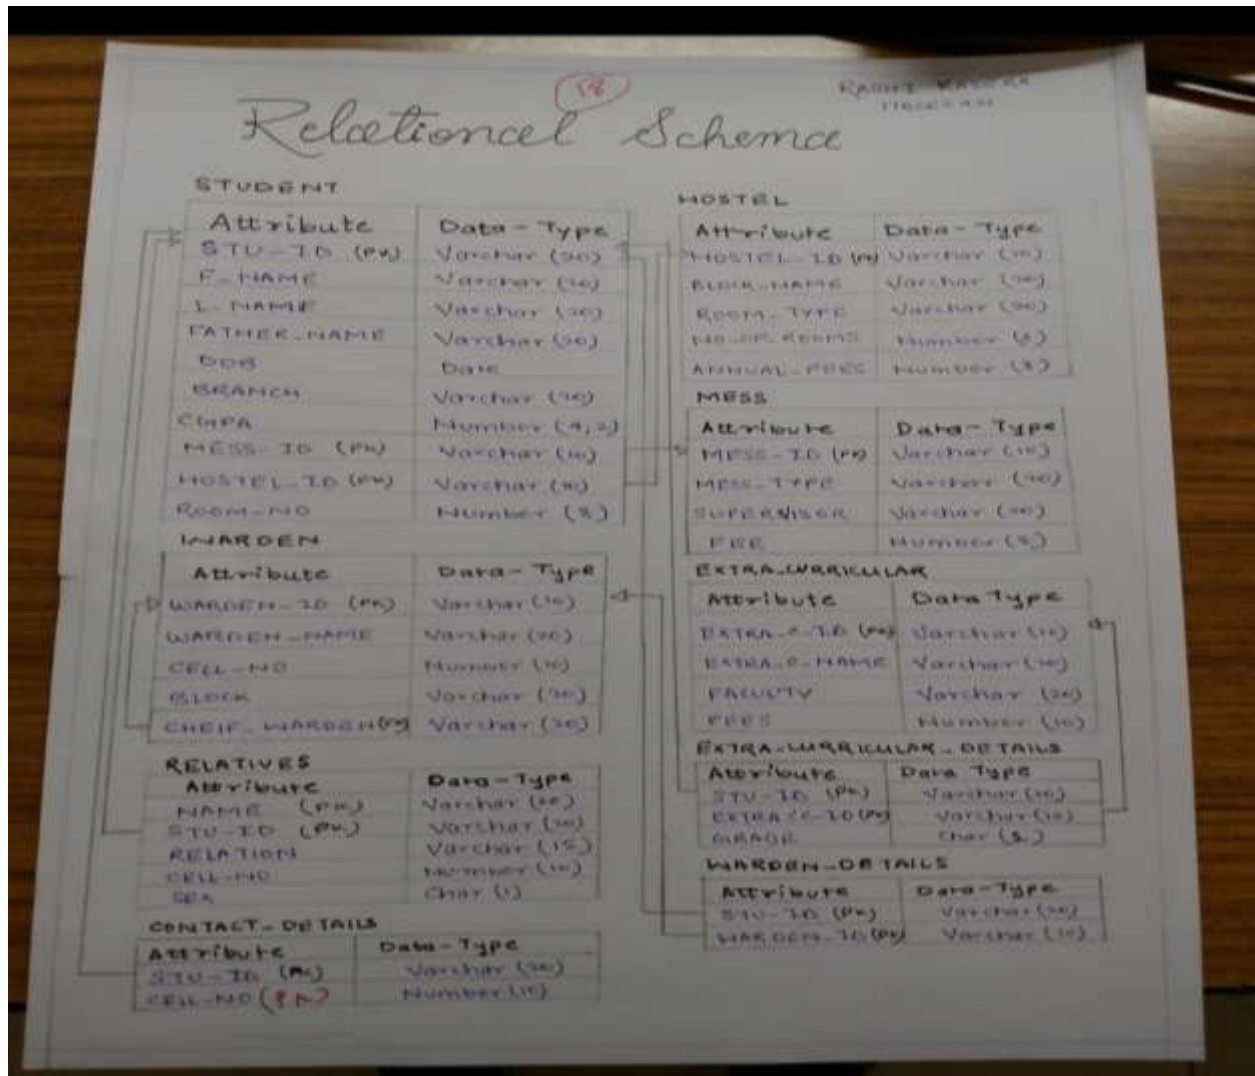 18
RASHI
Relational Schema
STUDENT
Attribute Data-Type
STU-ID (PK) Varchar (20)
F-NAME Varchar (20)
L-NAME Varchar (20)
FATHER-NAME Varchar (20)
DOB Date
BRANCH Varchar (20)
CGPA Number (4,2)
MESS-ID (FK) Varchar (10)
HOSTEL-ID (FK) Varchar (10)
ROOM-NO Number (8)
WARDEN
Attribute Data-Type
WARDEN-ID (PK) Varchar (10)
WARDEN-NAME Varchar (20)
CELL-NO Number (10)
BLOCK Varchar (20)
CHEIF-WARDEN (FK) Varchar (20)
RELATIVES
Attribute Data-Type
NAME (PK) Varchar (20)
STU-ID (PK) Varchar (20)
RELATION Varchar (15)
CELL-NO Number (10)
SEX Char (1)
CONTACT-DETAILS
Attribute Data-Type
STU-ID Varchar (20)
CELL-NO Number (10)
HOSTEL
Attribute Data-Type
HOSTEL-ID (PK) Varchar (10)
BLOCK-NAME Varchar (20)
ROOM-TYPE Varchar (20)
NO-OF-ROOMS Number (8)
ANNUAL-FEES Number (8)
MESS
Attribute Data-Type
MESS-ID (PK) Varchar (10)
MESS-TYPE Varchar (20)
SUPERVISOR Varchar (20)
FEE Number (8)
EXTRA-CURRICULAR
Attribute Data Type
EXTRA-C-ID (PK) Varchar (10)
EXTRA-C-NAME Varchar (20)
FACULTY Varchar (20)
FEES Number (10)
EXTRA-CURRICULAR-DETAILS
Attribute Data Type
STU-ID (PK) Varchar (20)
EXTRA-C-ID (PK) Varchar (10)
GRADE Char
WARDEN-DETAILS
Attribute Data-Type
STU-ID (PK) Varchar (20)
WARDEN-ID (PK) Varchar (10)